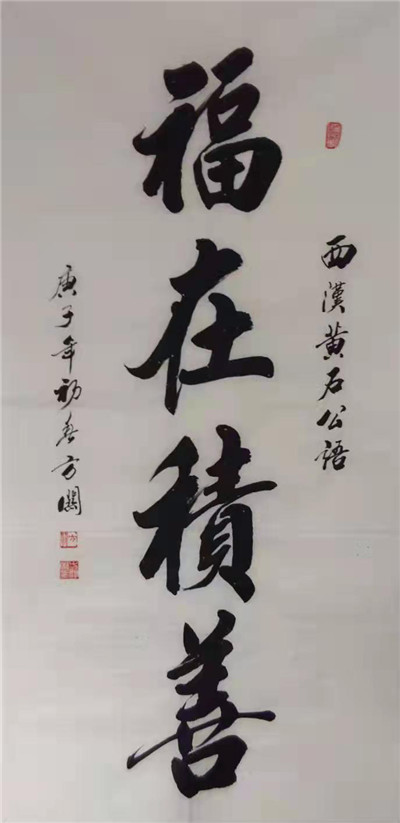 西漢黄石公語
福在積善
庚子年初春方